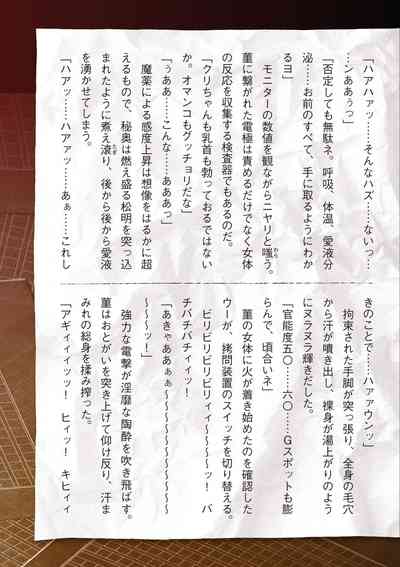 「ハアハアッ……そんなハズ……ないっ…
…ンあぁっ」
「否定しても無駄ネ。呼吸、体温、愛液分
泌……お前のすべて、手に取るようにわか
るヨ」
　モニターの数値を観ながらニヤリと嗤う。
菫に繋がれた電極は責めるだけでなく女体
の反応を収集する検査器でもあるのだ。
「クリちゃんも乳首も勃っておるではない
か。オマンコもグッチョリだな」
「ぅああ……こんな……あああっ」
　魔薬による感度上昇は想像をはるかに超
えるもので、秘奥は燃え盛る松明を突っ込
まれたように煮え滾り、後から後から愛液
を湧かせてしまう。
「ハアッ……ハアァッ……あぁ……これし
きのことで……ハァァウンッ」
　拘束された手脚が突っ張り、全身の毛穴
から汗が噴き出し、裸身が湯上がりのよう
にヌラヌラ輝きだした。
「官能度五〇……六〇……Ｇスポットも膨
らんで、頃合いネ」
　菫の女体に火が着き始めたのを確認した
ウーが、拷問装置のスイッチを切り替える。
　ビリビリビリビリィィ～～～～ッ！　バ
チバチバチィィッ！
「あきゃああぁぁ～～～～～～～～～～～
～～～ッ！」
　強力な電撃が淫靡な陶酔を吹き飛ばす。
菫はおとがいを突き上げて仰け反り、汗ま
みれの総身を揉み搾った。
「アギィィィッッ！　ヒィッ！　キヒィィ